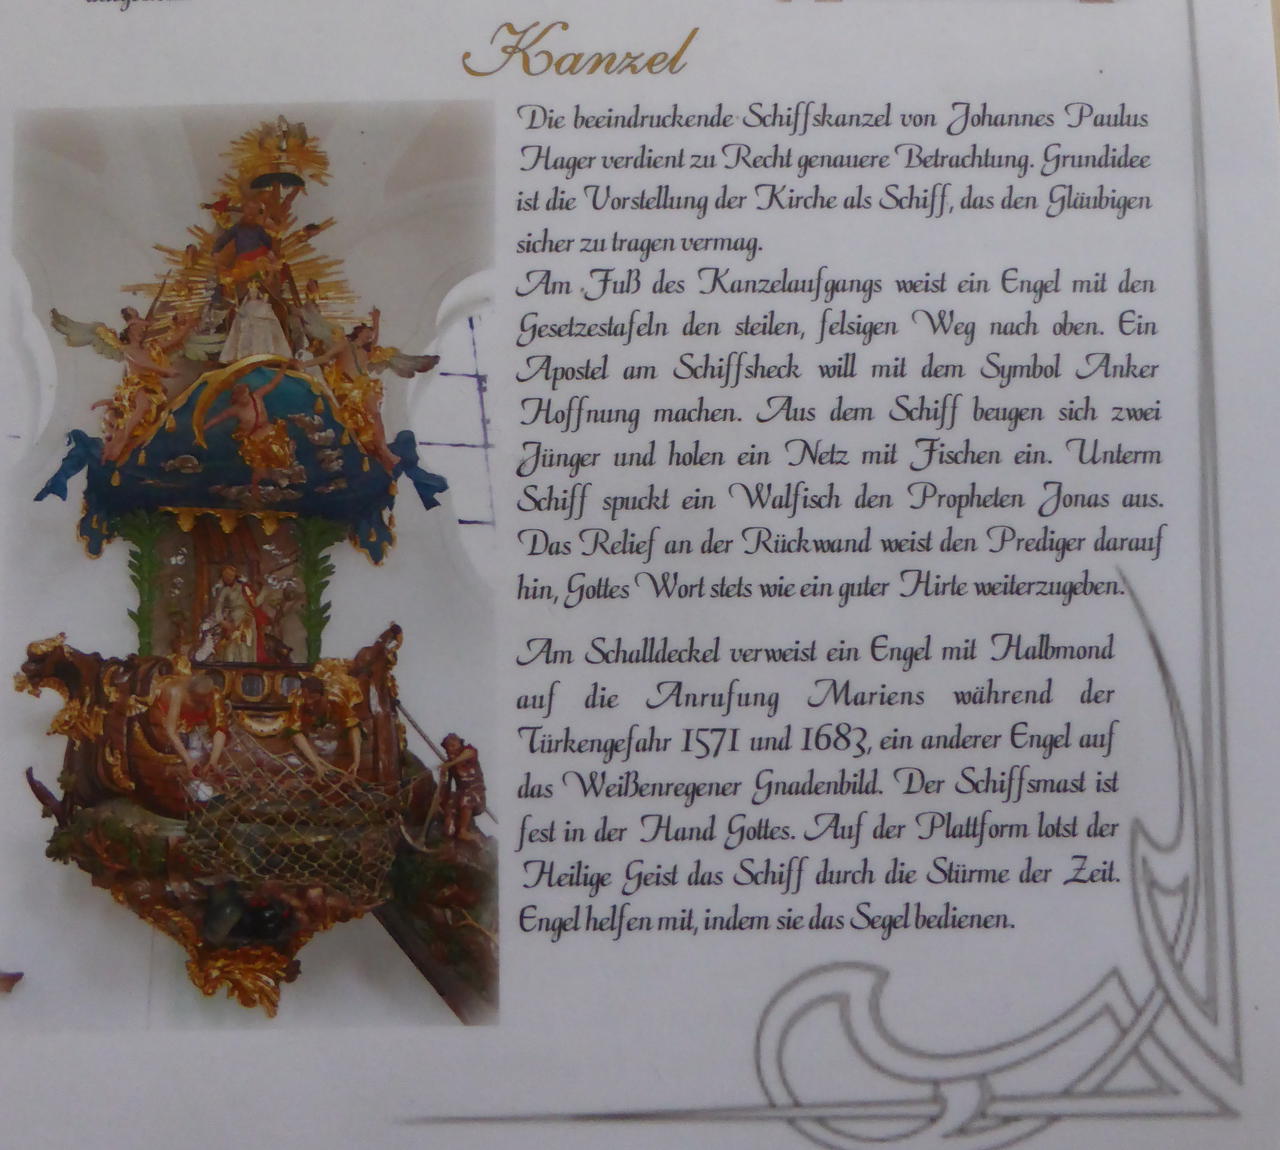 Kanzel
Die beeindruckende Schiffskanzel von Johannes Paulus
Hager verdient zu Recht genauere Betrachtung. Grundidee
ist die Vorstellung der Kirche als Schiff, das den Gläubigen
sicher zu tragen vermag.
Am Fuß des Kanzelaufgangs weist ein Engel mit den
Gesetzestafeln den steilen, felsigen Weg nach oben. Ein
Apostel am Schiffsheck will mit dem Symbol Anker
Hoffnung machen. Aus dem Schiff beugen sich zwei
Jünger und holen ein Netz mit Fischen ein. Unterm
Schiff spuckt ein Walfisch den Propheten Jonas aus.
Das Relief an der Rückwand weist den Prediger darauf
hin, Gottes Wort stets wie ein guter Hirte weiterzugeben.
Am Schalldeckel verweist ein Engel mit Halbmond
auf die Anrufung Mariens während der
Türkengefahr 1571 und 1683, ein anderer Engel auf
das Weißenregener Gnadenbild. Der Schiffsmast ist
fest in der Hand Gottes. Auf der Plattform lotst der
Heilige Geist das Schiff durch die Stürme der Zeit.
Engel helfen mit, indem sie das Segel bedienen.